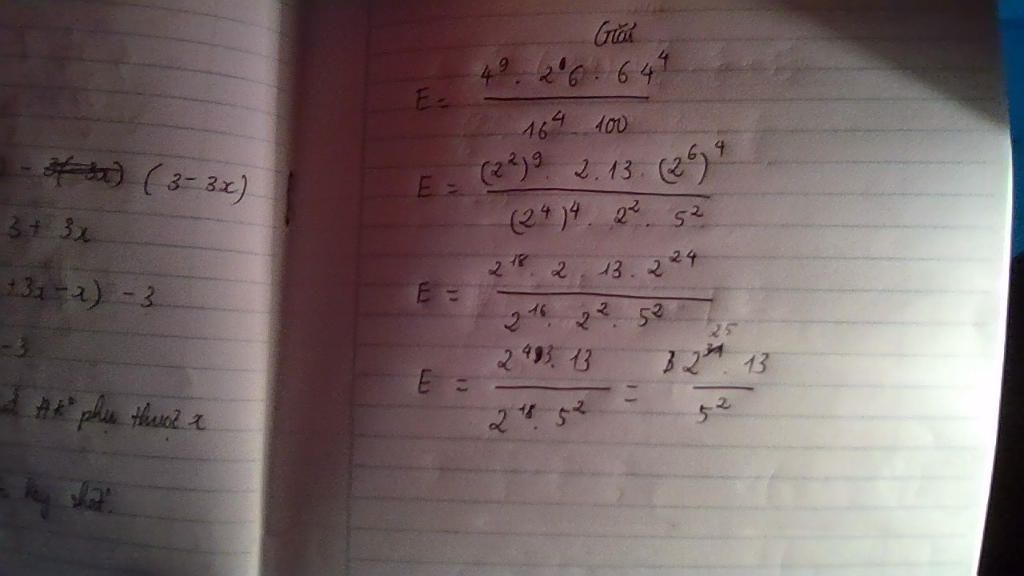 - (3 - 3x)
3 + 3x
+3x - x) - 3
-3
phụ thuộc x
Giải
E = \frac{4^9 . 26 . 64^4}{16^4 . 100}
E = \frac{(2^2)^9 . 2 . 13 . (2^6)^4}{(2^4)^4 . 2^2 . 5^2}
E = \frac{2^{18} . 2 . 13 . 2^{24}}{2^{16} . 2^2 . 5^2}
E = \frac{2^{43} . 13}{2^{18} . 5^2} = \frac{2^{25} . 13}{5^2}